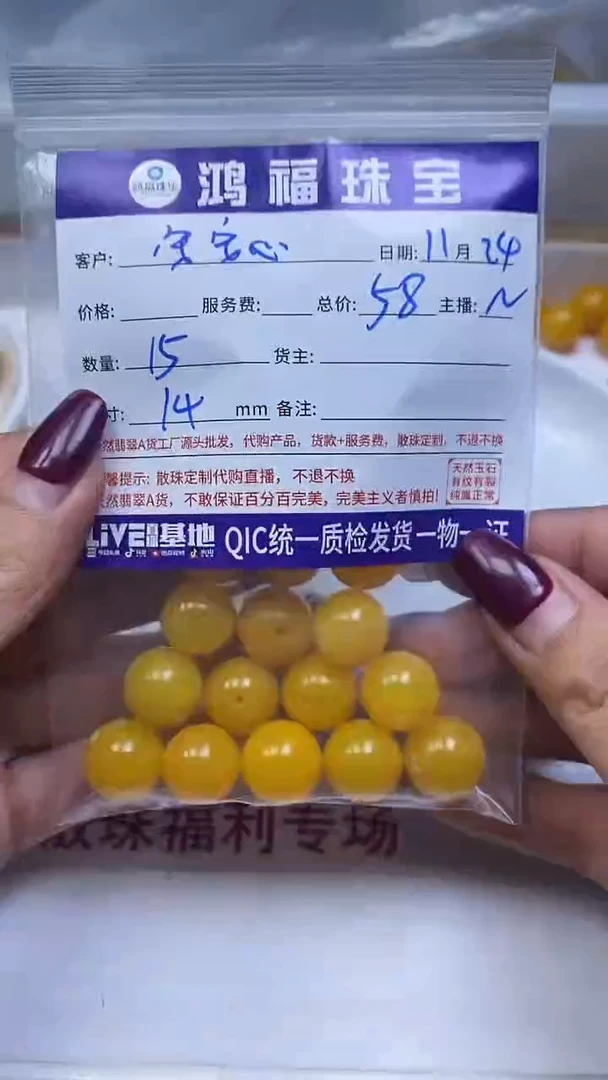 鸿福珠宝
客户: 宝宝心 日期: 11月24
价格: 服务费: 总价: 58 主播: N
数量: 15 货主:
寸: 14 mm 备注:
然翡翠A货工厂源头批发，代购产品，货款+服务费，散珠定制，不退不换
馨提示: 散珠定制代购直播，不退不换
天然翡翠A货，不敢保证百分百完美，完美主义者慎拍!
天然玉石
有纹有裂
纯属正常
LIVE 基地 QIC统一质检发货一物一证
散珠福利专场